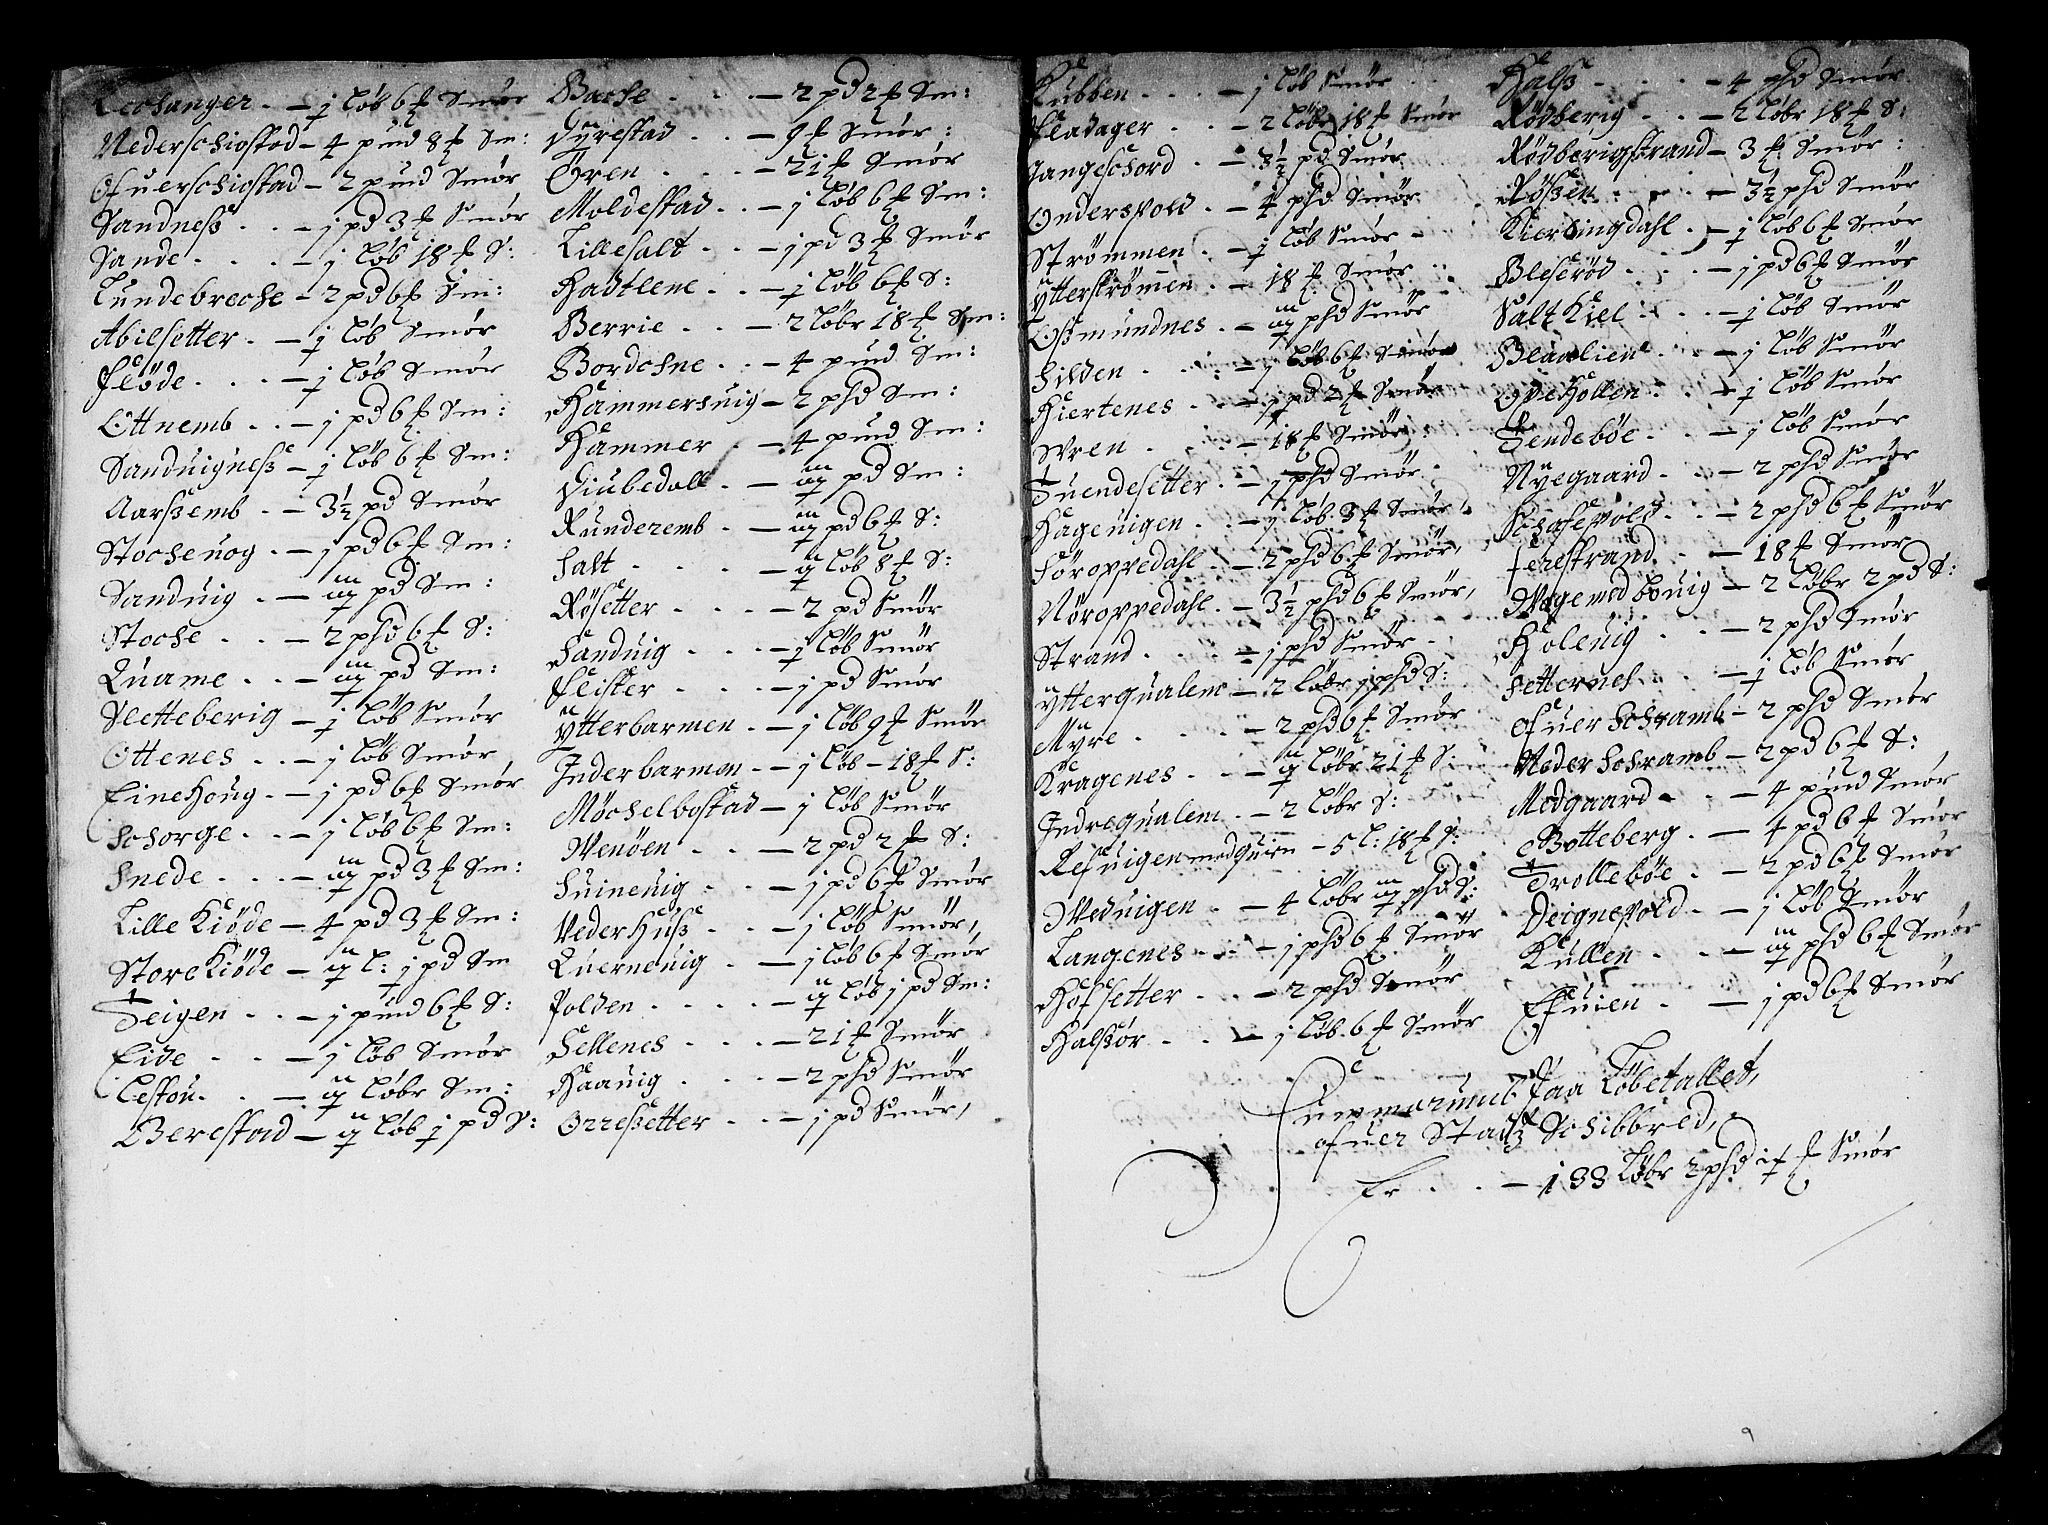 Lechanger - j løb 6 ℔ Smør
Nederschiostad - 4 pund 8 ℔ Sm:
Ofuerschiostad - 2 pund Smør
Sandness - j pd 3 ℔ Smør
Sande - j løb 18 ℔ S:
Lundebreche - 2 pd 6 ℔ Sm:
Abilsetter - j løb Smør
Fløde - j løb Smør
Ottnemb - j pd 6 ℔ Sm:
Sanduigness - j løb 6 ℔ Sm:
Aarssemb - 3½ pd Smør
Stocheuog - j pd 6 ℔ Sm:
Sanduig - pd Sm:
Stoche - 2 phd 6 ℔ S:
Quame - pd Sm:
Sletteberig - j løb Smør
Ottenes - j løb Smør
Einehoug - j pd 6 ℔ Smør
Schorge - j løb 6 ℔ Sm:
Snede - pd 3 ℔ Sm:
Lille Kiøde - 4 pd 3 ℔ Sm:
Store Kiøde - l: j pd Sm
Teigen - j pund 6 ℔ S:
Eide - j løb Smør
Lestou - løbr Sm:
Berestad - løb j pd S:
Bache - 2 pd 2 ℔ Sm:
Dyrestad - 9 ℔ Smør:
Øren - 21 ℔ Smør
Moldestad - j løb 6 ℔ Sm:
Lillesalt - j pd 3 ℔ Smør
Hadtlene - j løb 6 ℔ S:
Berrie - 2 løbr 18 ℔ Sm:
Bordchne - 4 pund Sm:
Hammersuig - 2 phd Sm:
Hammer - 4 pund Sm:
Diubedall - pd Sm:
Runderemb - pd 6 ℔ S:
Salt - løb 8 ℔ S:
Røsetter - 2 pd Smør
Sanduig - j løb Smør
Flister - j pd Smør
Ytterbarmen - j løb 9 ℔ Smør
Inderbarmen - j løb - 18 ℔ S:
Møchelbostad - j løb Smør
Wenøen - 2 pd 2 ℔ S:
Suineuig - j pd 6 ℔ Smør
Vederhuss - j løb Smør,
Querneuig - j løb 6 ℔ Smør
Polden - løb j pd Sm:
Sellenes - 21 ℔ Smør
Haauig - 2 phd Smør
Orressetter - j pd Smør,
Kubben - j løb Smør
Fladager - 2 løbr 18 ℔ Smør
Langeschord - 3½ pd Smør
Onderspold - 4 phd Smør
Strømmen - j løb Smør
Ytterstrømen - 18 ℔ Smør
Ossmundnes - phd Smør
Silden - j løb 6 ℔ Smør
Hiertenes - j pd 2 ℔ Smør
Wren - 18 ℔ Smør
Tuendesetter - j phd Smør
Hageuigen - j løb 3 ℔ Smør
Søroppedahl - 2 phd 6 ℔ Smør,
Nøroppedahl - 3½ phd 6 ℔ Smør,
Strand - j phd Smør
Ytterqualem - 2 løbr j phd S:
Myre - 2 phd 6 ℔ Smør
Kragenes - løbr 21 ℔ S:
Indrequalem - 2 løbr S:
Refuigen med - 5 l: 18 ℔ S:
Weduigen - 4 løbr phd S:
Langenes - j phd 6 ℔ Smør
Hofsetter - 2 phd Smør
Halssør - j løb 6 ℔ Smør
Halss - 4 phd Smør
Rødberig - 2 løbr 18 ℔ S:
Rødberigstrand - 3 ℔ Smør:
Røssen - 3½ phd Smør
Kierlingdahl - j løb 6 ℔ Smør
Bleserød - j pd 6 ℔ Smør
Saltkiel - j løb Smør
Blaalien - j løb Smør
Opdehollen - j løb Smør
Tendebøe - j løb Smør
Nyegaard - 2 phd Smør
Schafespold - 2 phd 6 ℔ Smør
Ferestrand - 18 ℔ Smør
Wage med bouig - 2 løbr 2 pd S:
Holeuig - 2 phd Smør
Setternes - j løb Smør
Ofuer Schramb - 2 phd Smør
Neder Schramb - 2 pd 6 ℔ S:
Medgaard - 4 pund Smør
Botteberg - 4 pd 6 ℔ Smør
Trollebøe - 2 pd 6 ℔ Smør
Deignepold - j løb Smør
Kullen - phd 6 ℔ Smør
Efuien - j pd 6 ℔ Smør
Summarumb Paa Løbetallet,
ofuer Stadtz Schibbred,
Er - 133 Løbr 2 phd ℔ Smør